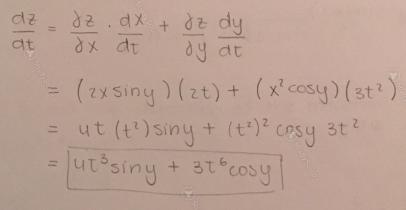 dz/dt = ∂z/∂x · dx/dt + ∂z/∂y dy/dt
= (2x siny)(2t) + (x² cosy)(3t²)
= 4t (t²) siny + (t²)² cosy 3t²
= 4t³ siny + 3t⁶ cosy